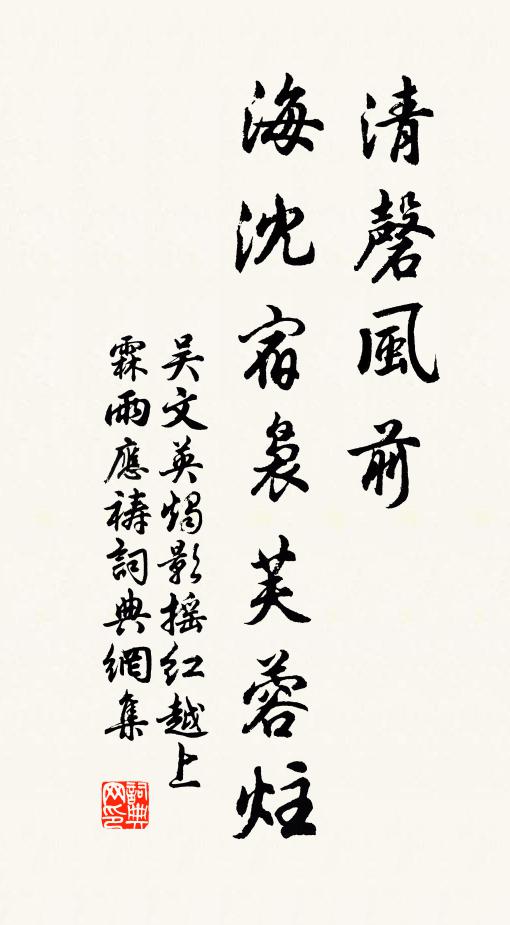 清磬風前
海沈宿裊芙蓉炷
吴文英燭影摇紅越上
霖雨應禱詞典網集
詞典
网印